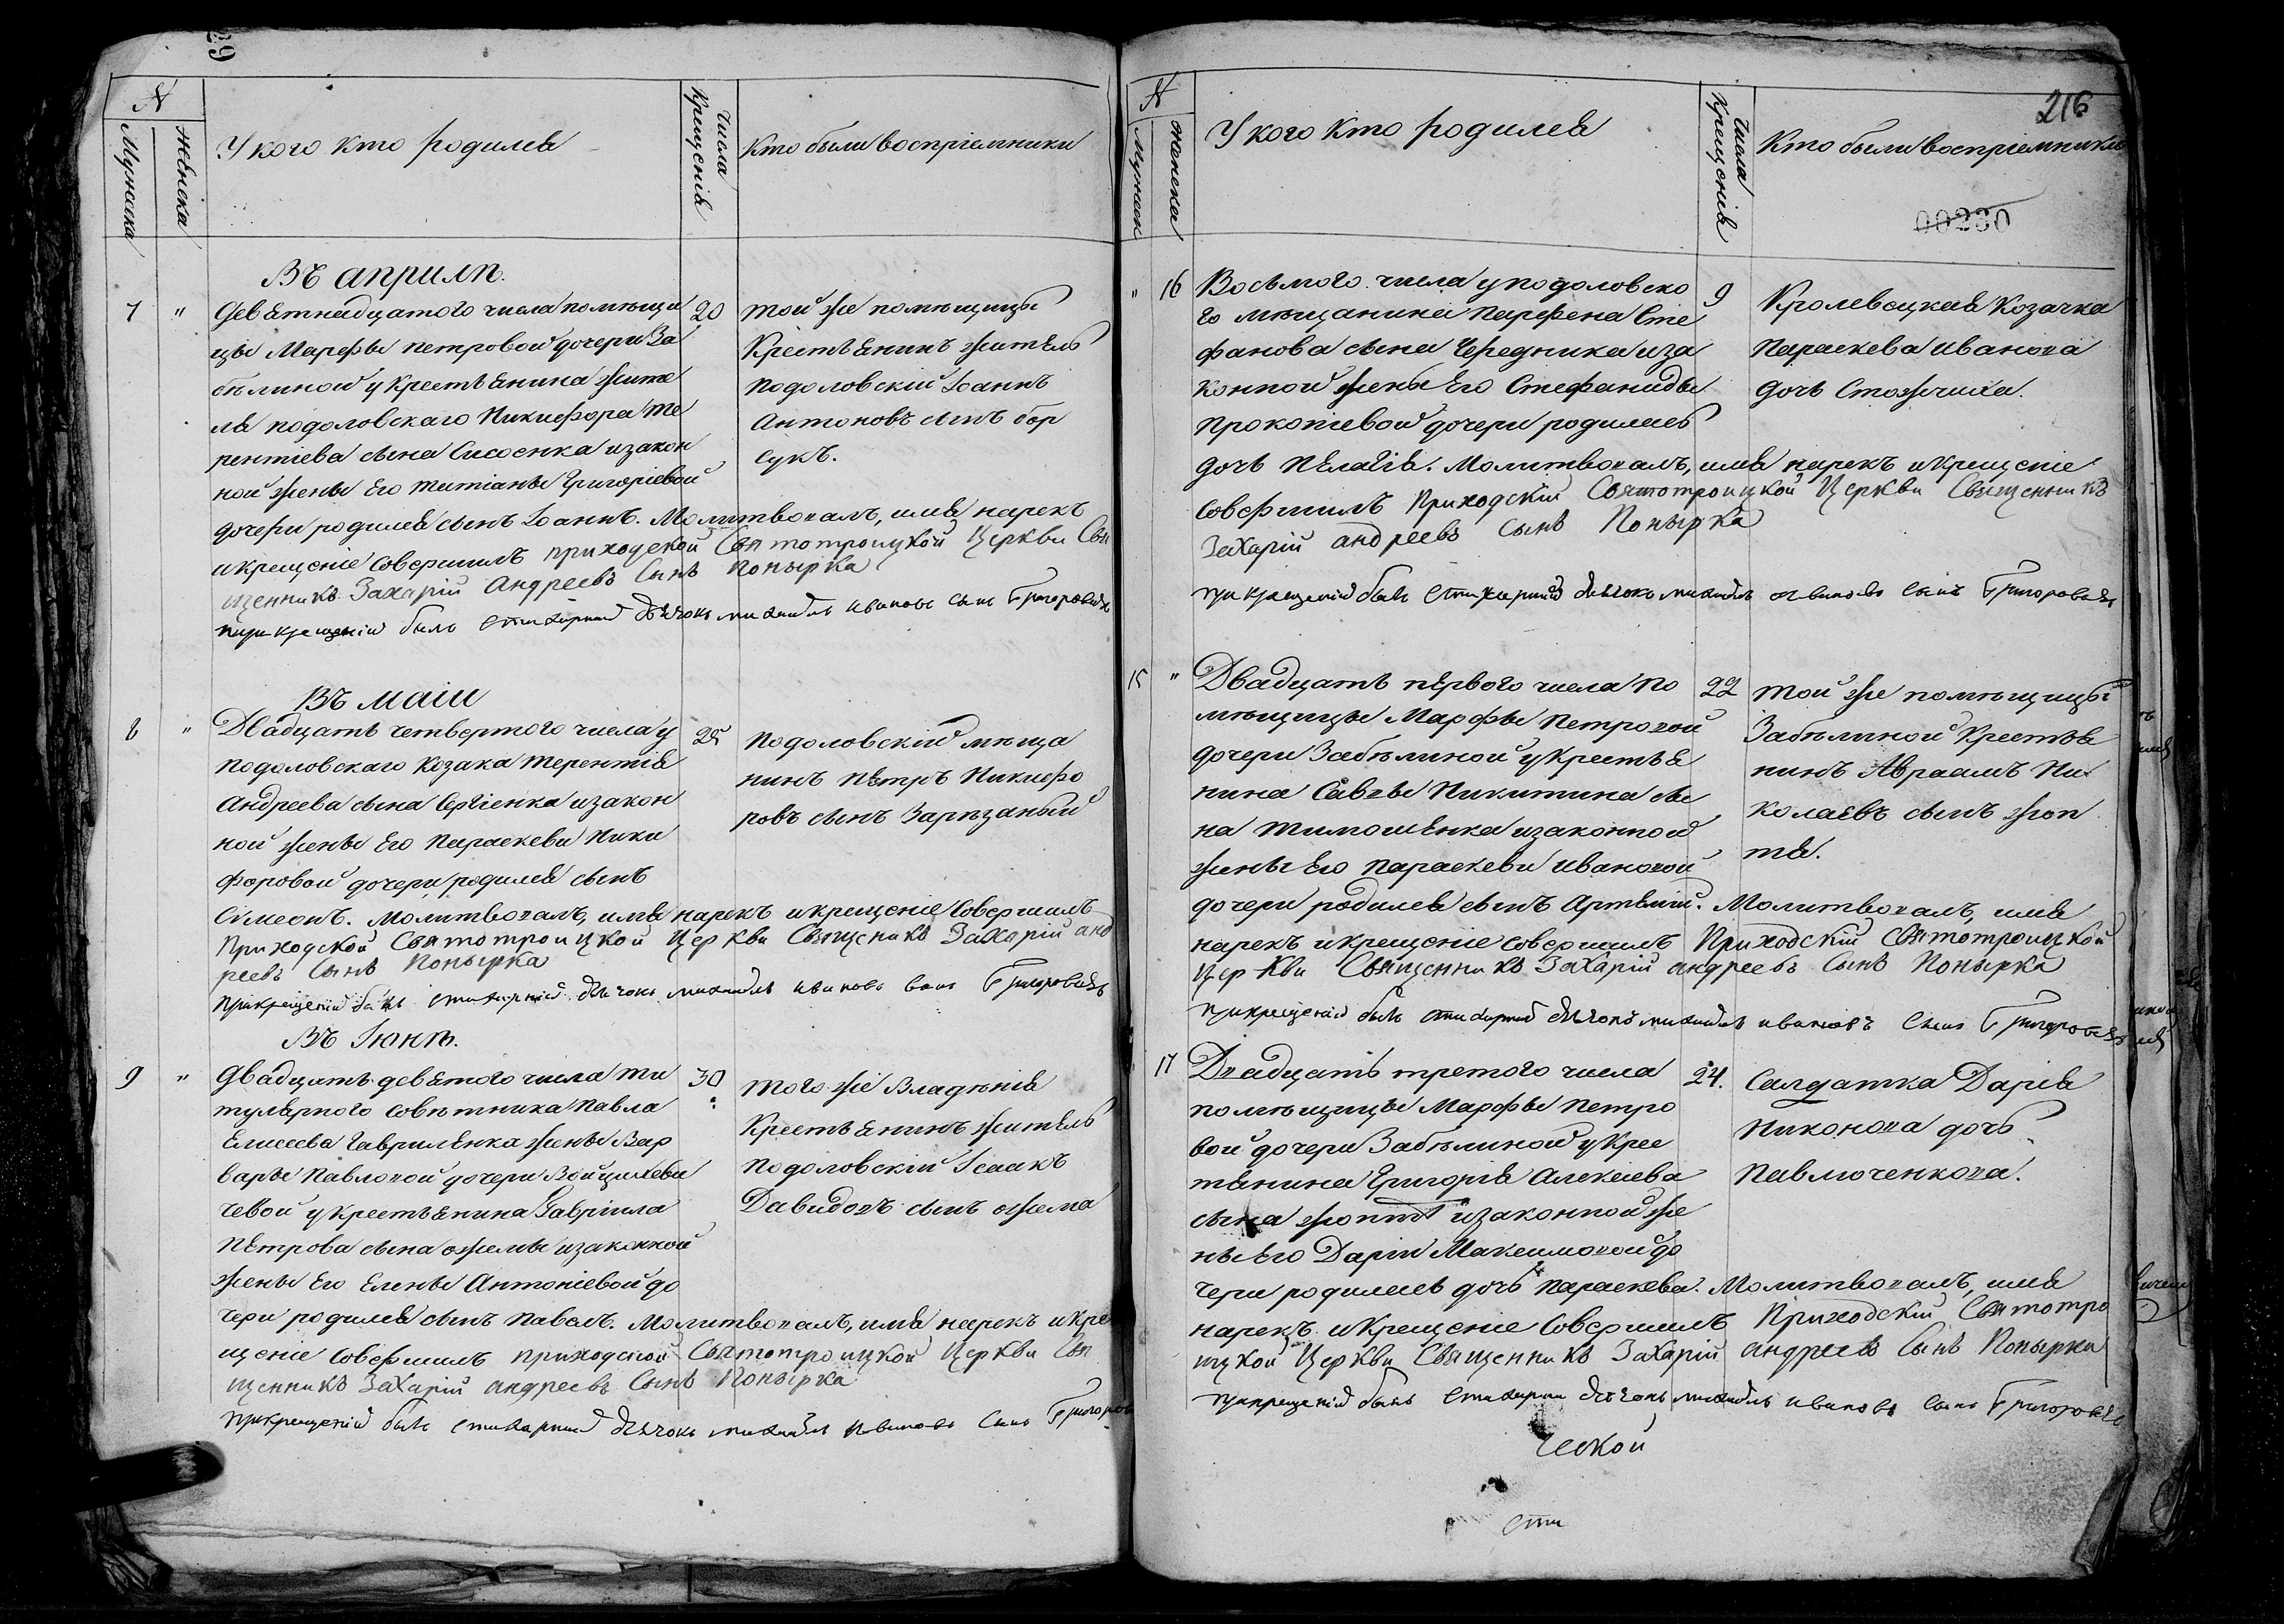 №
Мужска
женска
У кого кто родился
Числа Крещенія
Кто были восприемники
Въ априлѣ.
7 " Девятнадцатого числа помѣщи 20
цы Марфы Петровой дочери За
бѣлиной у Крестьянина жите
ля подоловскаго Никифора Те
рентіева сына Сисоенка изакон
ной жены Его Титіаны Григоріевой
дочери родился сынъ Іоаннъ. Молитвовалъ, имя нарекъ
икрещеніе Совершилъ приходской Святотроицкой Церкви Свя
щенникъ Захарій Андреевъ Сынъ Попырка
при крещеніи былъ Стихарный дьячокъ михаилъ Ивановъ сынъ Григоровичъ
той же помѣщицы
Крестьянинъ житель
подоловскій Іоаннъ
Антоновъ сынъ бор
сукъ.
Въ маіи
8 " Двадцать четвертого числа у 25
подоловскаго Козака Терентія
Андреева сына Сергіенка изакон
ной жены Его Параскеви Ники
форовой дочери родился сынъ
Симеонъ. Молитвовалъ, имя нарекъ икрещеніе Совершилъ
Приходской Святотроицкой Церкви Священикъ Захарій анд
реевъ Сынъ Попырка
при крещеніи былъ стихарній дьячокъ михаилъ Ивановъ Сынъ Григоровичъ
подоловскій мѣща
нинъ Петръ Никифо
ровъ сынъ Зарѣзаный
Въ Іюнѣ.
9 " Двадцать девятого числа ти 30
тулярного Совѣтника Павла
Елисеева Гавриленка жены Вар
вары Павловой дочери Войцихеви
чевой у крестьянина Гавріила
Петрова сына ожемы изаконной
жены Его Елены Антоніевой до
чери родился сынъ Павелъ. Молитвовалъ, имя нарекъ икре
щеніе Совершилъ приходской Святотроицкой Церкви Свя
щенникъ Захарій андреевъ Сынъ Попырка
при крещеніи былъ стихарный дьячокъ михаилъ Ивановъ Сынъ Григоров
того же Владѣнія
Крестьянинъ житель
подоловскій Ісаакъ
Давидовъ сынъ ожема
216
00230
№
Мужск
женска
У кого кто родился
Числа Крещенія
Кто были восприемники
" 16 Восьмого числа у подоловско 9
го мѣщанина Парфена Сте
фанова сына Чередника иза
конной жены Его Стефаниды
Прокопіевой дочери родилась
дочь Пелагія. Молитвовалъ, имя нарекъ икрещеніе
совершилъ Приходскій Святотроицкой Церкви Священникъ
Захарій андреевъ Сынъ Попырка
при крещеніи былъ стихарный дьячокъ михаилъ Ивановъ Сынъ Григоровичъ
Кролевецкая Козачка
Параскева Иванова
дочь Стожчиха.
15 " Двадцать первого числа по 22
мѣщицы Марфы Петровой
дочери Забѣлиной у Крестья
нина Савы Никитина сы
на Тимошенка изаконной
жены Его Параскеви Ивановой
дочери родился сынъ Артемій. Молитвовалъ, имя
нарекъ икрещеніе совершилъ Приходскій Святотроицкой
Церкви Священникъ Захарій андреевъ Сынъ Попырка
при крещеніи былъ стихарный дьячокъ михаилъ Ивановъ Сынъ Григоровичъ
той же помѣщицы
Забѣлиной Крестья
нинъ Авраамъ Ни
колаевъ сынъ жов
тя.
17 Двадцать третого числа 24.
помѣщицы Марфы Петро
вой дочери Забѣлиной у Крес
тянина Григорія Алексіева
сына жовти изаконной же
ны Его Даріи Максимовой до
чери родилась дочь Параскева. Молитвовалъ, имя
нарекъ икрещеніе Совершилъ Приходскій Святотро
ицкой Церкви Священникъ Захарій андреевъ Сынъ Попырка
при крещеніи былъ Стихарни дьячокъ михаилъ Ивановъ Сынъ Григоровичъ
Салдатка Дарія
Никонова дочь
Павлюченкова.
ческой
сти